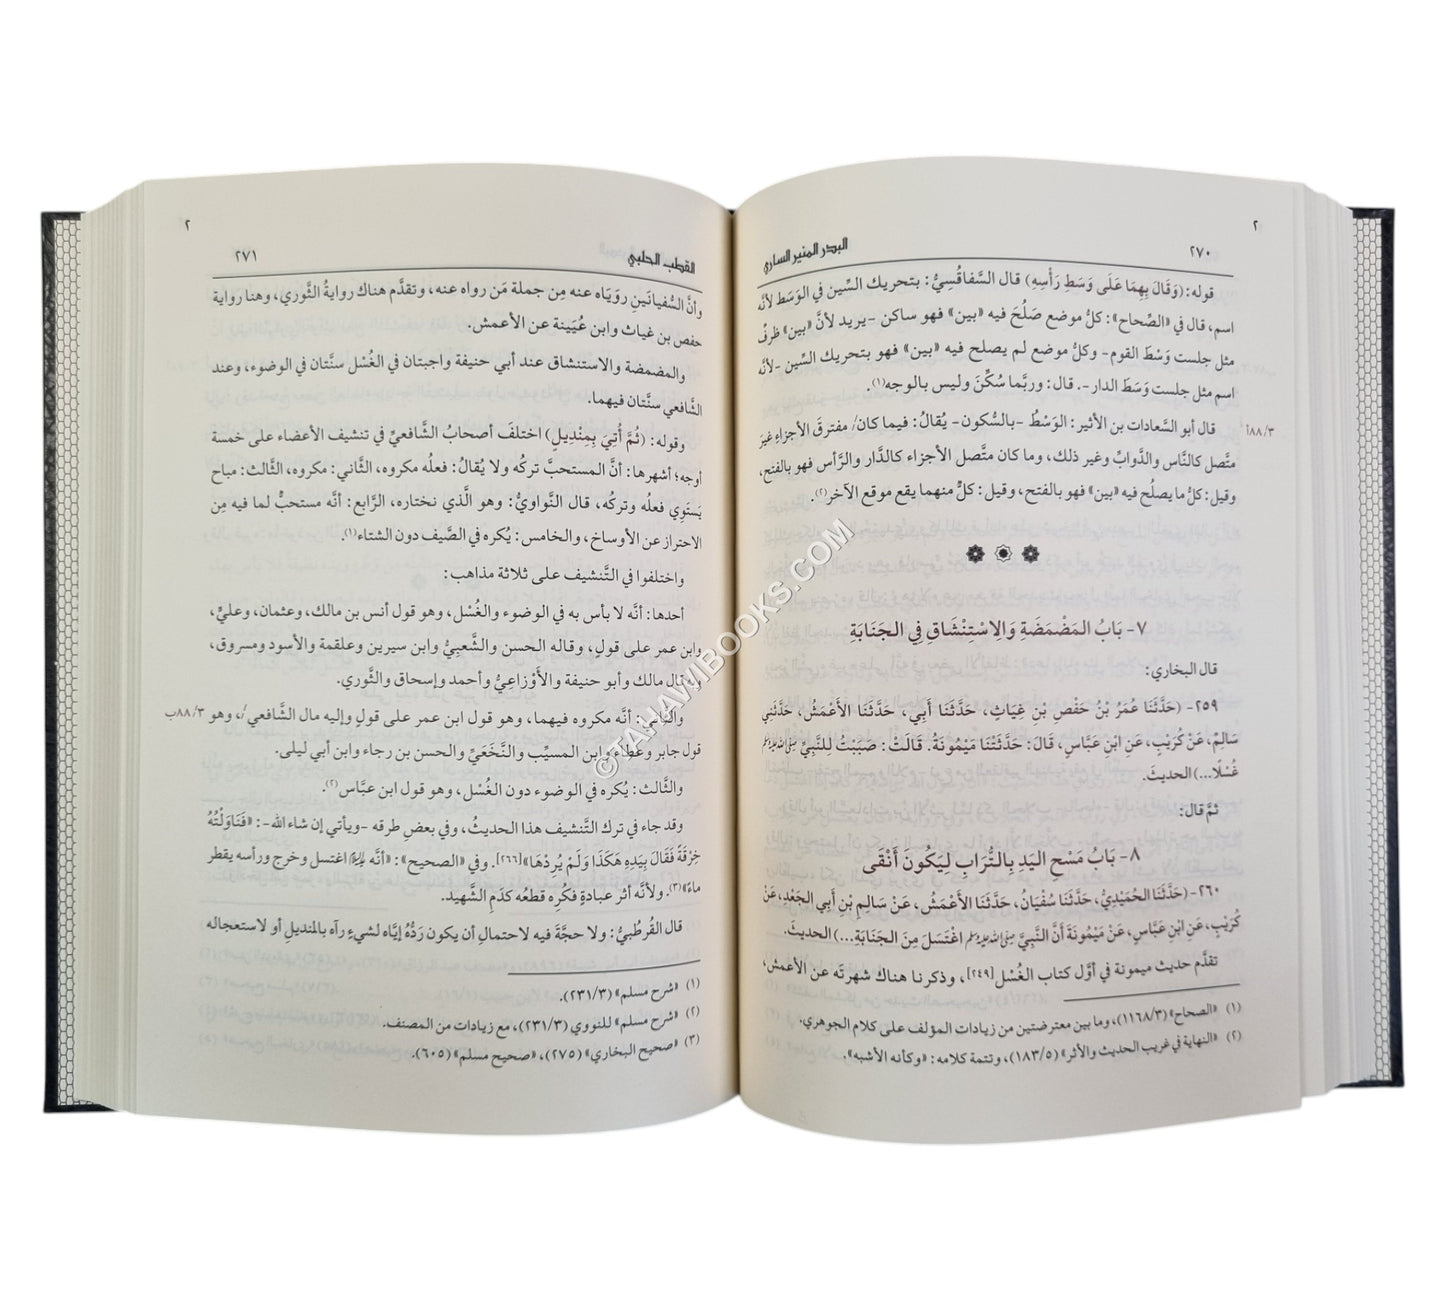 ٢
٢٧٠ البدر المنير الساري
قوله: (وَقَالَ بِهِمَا عَلَى وَسَطِ رَأْسِهِ) قال السَّفاقُسِيُّ: بتحريك السِّين في الوَسَط لأنَّه
اسم، قال في «الصِّحاح»: كلُّ موضع صَلُحَ فيه «بين» فهو ساكن -يريد لأنَّ «بين» ظرفٌ
مثل جلست وَسْطَ القوم- وكلُّ موضع لم يصلح فيه «بين» فهو بتحريك السِّين -لأنَّه
اسم مثل جلست وَسَطَ الدار-. قال: وربَّما سُكِّنَ وليس بالوجه(١).
قال أبو السَّعادات بن الأثير: الوَسْطُ -بالسُّكون- يُقالُ: فيما كان/ مفترقَ الأجزاءِ غيرَ ٨٨/٣أ
متَّصل كالنَّاس والدَّوابِّ وغير ذلك، وما كان متَّصل الأجزاء كالدَّار والرَّأس فهو بالفتح،
وقيل: كلُّ ما يصلُح فيه «بين» فهو بالفتح، وقيل: كلٌّ منهما يقع موقع الآخر(٢).
٧- بَابُ المَضْمَضَةِ وَالِاسْتِنْشَاقِ فِي الجَنَابَةِ
قال البخاري:
٢٥٩- (حَدَّثَنَا عُمَرُ بْنُ حَفْصِ بْنِ غِيَاثٍ، حَدَّثَنَا أَبِي، حَدَّثَنَا الأَعْمَشُ، حَدَّثَنِي
سَالِمٌ، عَنْ كُرَيْبٍ، عَنِ ابْنِ عَبَّاسٍ، قَالَ: حَدَّثَتْنَا مَيْمُونَةُ. قَالَتْ: صَبَبْتُ لِلنَّبِيِّ صلى الله عليه وسلم
غُسْلًا...) الحديثَ.
ثمَّ قال:
٨- بَابُ مَسْحِ اليَدِ بِالتُّرَابِ لِيَكُونَ أَنْقَى
٢٦٠- (حَدَّثَنَا الحُمَيْدِيُّ، حَدَّثَنَا سُفْيَانُ، حَدَّثَنَا الأَعْمَشُ، عَنْ سَالِمِ بْنِ أَبِي الجَعْدِ، عَنْ
كُرَيْبٍ، عَنِ ابْنِ عَبَّاسٍ، عَنْ مَيْمُونَةَ أَنَّ النَّبِيَّ صلى الله عليه وسلم اغْتَسَلَ مِنَ الجَنَابَةِ...) الحديثَ.
تقدَّم حديث ميمونة في أوَّل كتاب الغُسْل[٢٤٩]، وذكرنا هناك شهرتَه عن الأعمش،
(١) «الصحاح» (١١٦٨/٣)، وما بين معترضتين من زيادات المؤلف على كلام الجوهري.
(٢) «النهاية في غريب الحديث والأثر» (١٨٣/٥)، وتتمة كلامه: «وكأنه الأشبه».
٢
القطب الحلبي ٢٧١
وأنَّ السُّفيانَينِ روَيَاه عنه مِن جملة مَن رواه عنه، وتقدَّم هناك روايةُ الثَّوري، وهنا رواية
حفص بن غياث وابن عُيَينة عن الأعمش.
والمضمضة والاستنشاق عند أبي حنيفة واجبتان في الغُسْل سنَّتان في الوضوء، وعند
الشَّافعي سنَّتان فيهما.
وقوله: (ثُمَّ أُتِيَ بِمِنْدِيلٍ) اختلفَ أصحابُ الشَّافعيِّ في تنشيف الأعضاء على خمسة
أوجه؛ أشهرها: أنَّ المستحبَّ تركُه ولا يُقالُ: فعلُه مكروه، الثَّاني: مكروه، الثَّالث: مباح
يَستَوِي فعلُه وتركُه، قال النَّواويُّ: وهو الَّذي نختاره، الرَّابع: أنَّه مستحبٌّ لما فيه مِن
الاحتراز عن الأوساخ، والخامس: يُكره في الصَّيف دون الشتاء(١).
واختلفوا في التَّنشيف على ثلاثة مذاهب:
أحدها: أنَّه لا بأس به في الوضوء والغُسْل، وهو قول أنس بن مالك، وعثمان، وعليٍّ،
وابن عمر على قولٍ، وقاله الحسن والشَّعبيُّ وابن سيرين وعلقمة والأسود ومسروق،
وبه قال مالك وأبو حنيفة والأَوْزاعيُّ وأحمد وإسحاق والثَّوري.
والثَّاني: أنَّه مكروه فيهما، وهو قول ابن عمر على قولٍ وإليه مال الشَّافعي/، وهو ٨٨/٣ب
قول جابر وعطاء وابن المسيِّب والنَّخَعيِّ والحسن بن رجاء وابن أبي ليلى.
والثَّالث: يُكره في الوضوء دون الغُسْل، وهو قول ابن عبَّاس(٢).
وقد جاء في ترك التَّنشيف هذا الحديثُ، وفي بعضِ طرقه -ويأتي إن شاء الله-: «فَنَاوَلْتُهُ
خِرْقَةً فَقَالَ بِيَدِهِ هَكَذَا وَلَمْ يُرِدْهَا»[٢٦٦]. وفي «الصحيح»: «أنَّه اغتسل وخرج ورأسه يقطر
ماءً»(٣). ولأنَّه أثر عبادةٍ فكُرِه قطعُه كدَمِ الشَّهيد.
قال القُرطُبيُّ: ولا حجَّةَ فيه لاحتمالِ أن يكون رَدُّهُ إيَّاه لشيءٍ رآه بالمنديلِ أو لاستعجاله
(١) «شرح مسلم» (٢٣١/٣).
(٢) «شرح مسلم» للنووي (٢٣١/٣)، مع زيادات من المصنف.
(٣) «صحيح البخاري» (٢٧٥)، «صحيح مسلم» (٦٠٥).
©TAHAWIBOOKS.COM